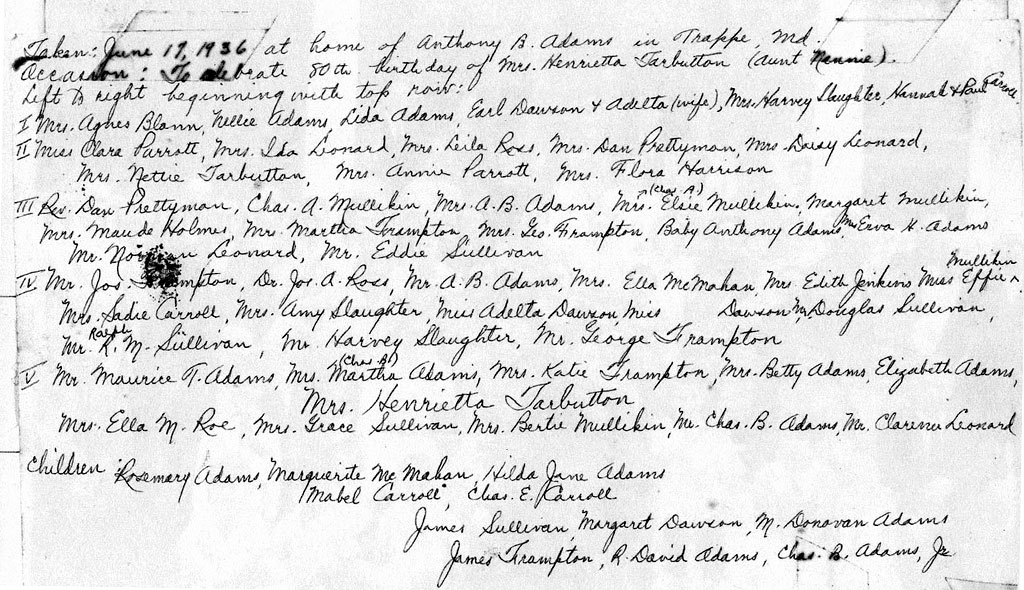 Taken: June 17, 1936 at home of Anthony B. Adams in Trappe, Md.
Occassion: To celebrate 80th birthday of Mrs. Henrietta Tarbutton (aunt Nannie).
Left to right beginning with top row:
I Mrs. Agnes Blann, Nellie Adams, Lida Adams, Earl Dawson & Adelta (wife), Mrs. Harvey Slaughter, Hannah & Paul
II Miss Clara Parrott, Mrs. Ida Leonard, Mrs. Leila Ross, Mrs. Dan Prettyman, Mrs. Daisy Leonard,
Mrs. Nettie Tarbutton, Mrs. Annie Parrott, Mrs. Flora Harrison
III Rev. Dan Prettyman, Chas. A. Mullikin, Mrs. A. B. Adams, Mrs. (Chas A.) Elsie Mulliken, Margaret Mullikin,
Mrs. Maude Holmes, Mrs. Martha Frampton Mrs. Geo. Frampton, Baby Anthony Adams, Mrs Erva H. Adams
Mr. Norman Leonard, Mr. Eddie Sullivan
IV Mr. Jos. Frampton, Dr. Jos. A. Ross, Mr. A. B. Adams, Mrs. Ella McMahan, Mrs. Edith Jenkins Miss Effie Mullikin,
Mrs. Sadie Carroll, Mrs. Amy Slaughter, Miss Adelta Dawson, Miss Dawson, Mr. Douglas Sullivan,
Mr. Ralph R. M. Sullivan, Mr. Harvey Slaughter, Mr. George Frampton
V Mr. Maurice T. Adams, Mrs. (Chas B.) Martha Adams, Mrs. Katie Frampton, Mrs. Betty Adams, Elizabeth Adams,
Mrs. Henrietta Tarbutton
Mrs. Ella M. Roe, Mrs. Grace Sullivan, Mrs. Bertie Mullikin, Mr. Chas. B. Adams, Mr. Clarence Leonard
Children: Rosemary Adams, Marguerite McMahan, Hilda Jane Adams
Mabel Carroll, Chas. E. Carroll
James Sullivan, Margaret Dawson, M. Donovan Adams
James Frampton, R. David Adams, Chas. B. Adams, Jr.